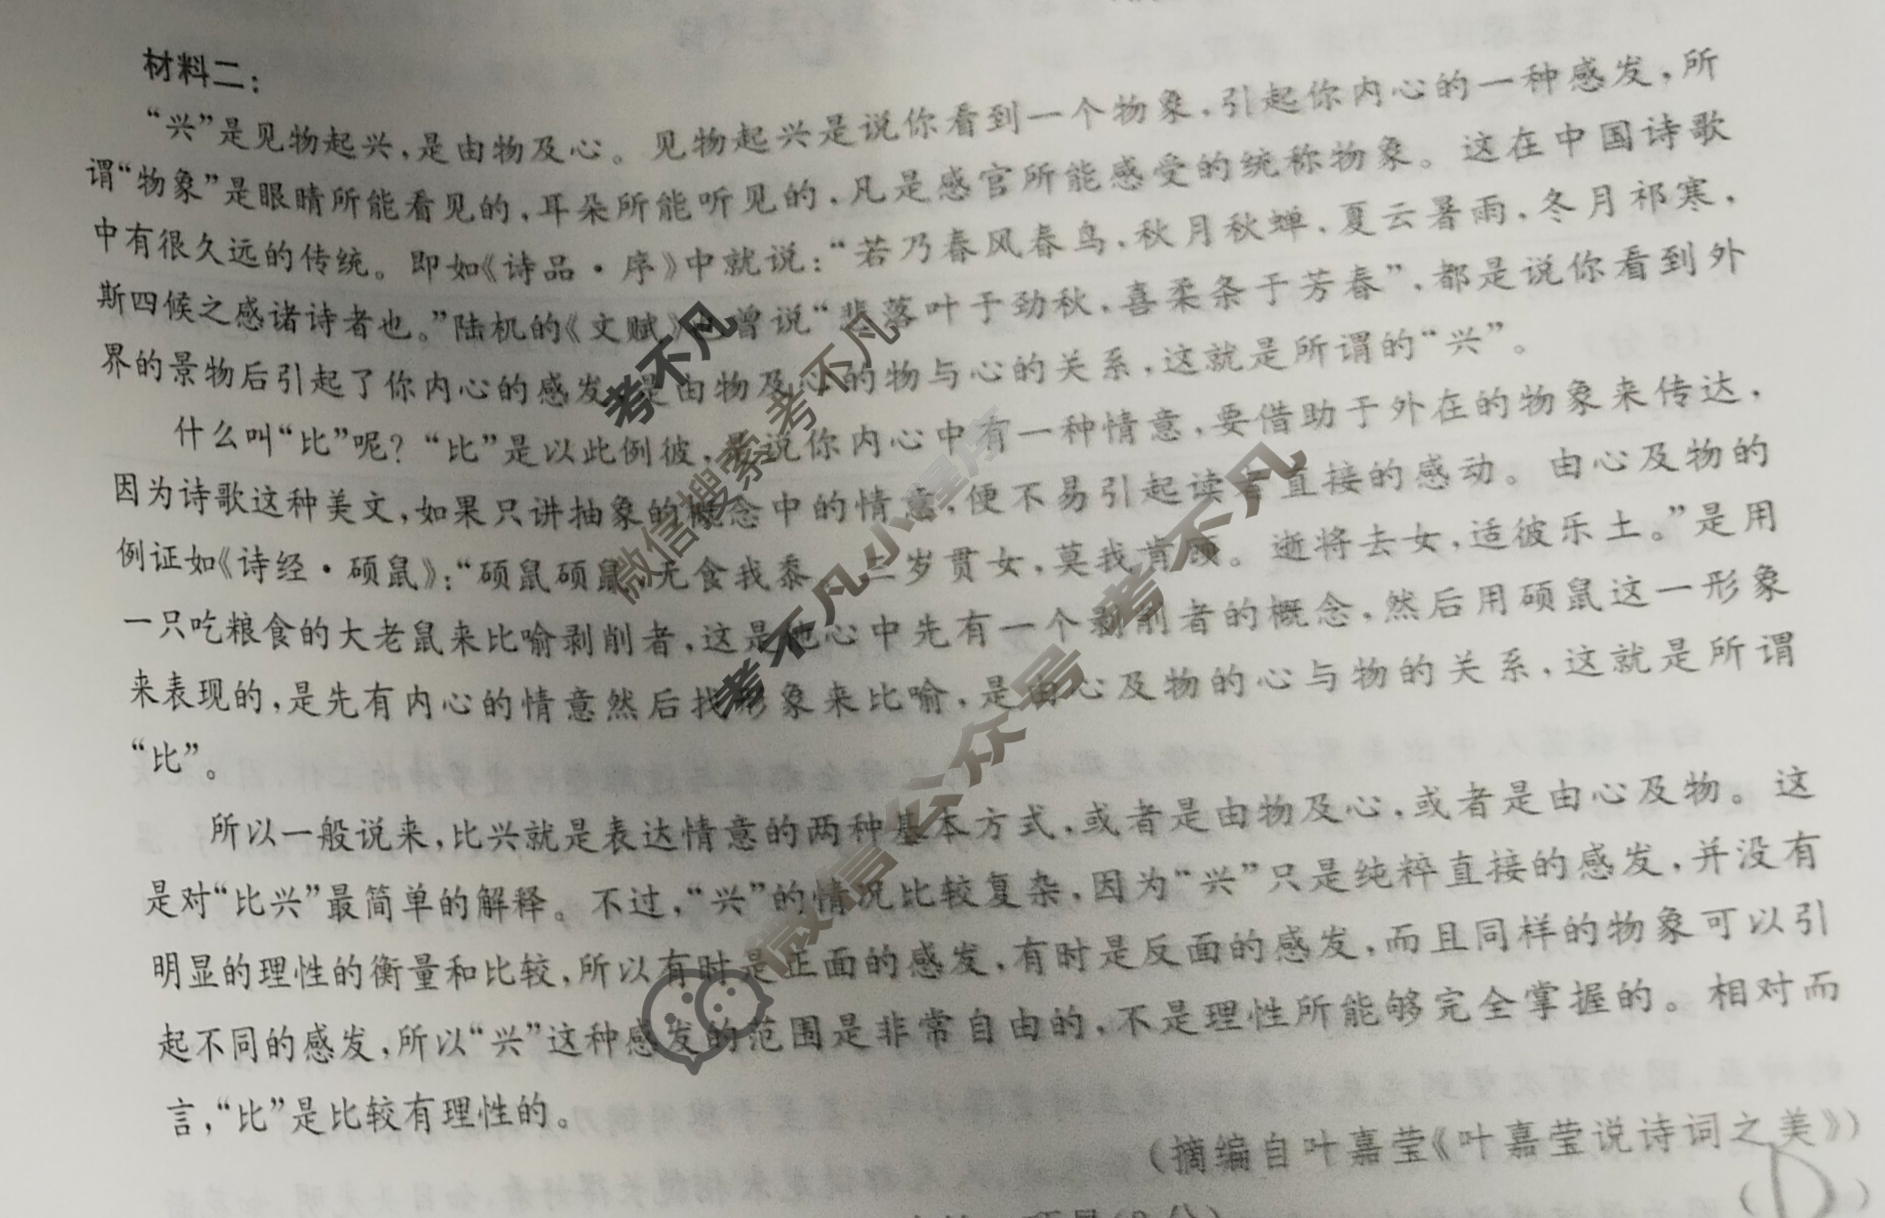 材料二：
“兴”是见物起兴，是由物及心。见物起兴是说你看到一个物象，引起你内心的一种感发，所
谓“物象”是眼睛所能看见的，耳朵所能听见的，凡是感官所能感受的统称物象。这在中国诗歌
中有很久远的传统。即如《诗品·序》中就说：“若乃春风春鸟，秋月秋蝉，夏云暑雨，冬月祁寒，
斯四候之感诸诗者也。”陆机的《文赋》也曾说“悲落叶于劲秋，喜柔条于芳春”，都是说你看到外
界的景物后引起了你内心的感发，是由物及心的物与心的关系，这就是所谓的“兴”。
什么叫“比”呢？“比”是以此例彼，是说你内心中有一种情意，要借助于外在的物象来传达，
因为诗歌这种美文，如果只讲抽象的概念中的情意，便不易引起读者直接的感动。由心及物的
例证如《诗经·硕鼠》：“硕鼠硕鼠，无食我黍。三岁贯女，莫我肯顾。逝将去女，适彼乐土。”是用
一只吃粮食的大老鼠来比喻剥削者，这是他心中先有一个剥削者的概念，然后用硕鼠这一形象
来表现的，是先有内心的情意然后找形象来比喻，是由心及物的心与物的关系，这就是所谓
“比”。
所以一般说来，比兴就是表达情意的两种基本方式，或者是由物及心，或者是由心及物。这
是对“比兴”最简单的解释。不过，“兴”的情况比较复杂，因为“兴”只是纯粹直接的感发，并没有
明显的理性的衡量和比较，所以有时是正面的感发，有时是反面的感发，而且同样的物象可以引
起不同的感发，所以“兴”这种感发的范围是非常自由的，不是理性所能够完全掌握的。相对而
言，“比”是比较有理性的。
（摘编自叶嘉莹《叶嘉莹说诗词之美》）
（D）
考不凡
微信搜索 考不凡
考不凡小程序
微信公众号 考不凡